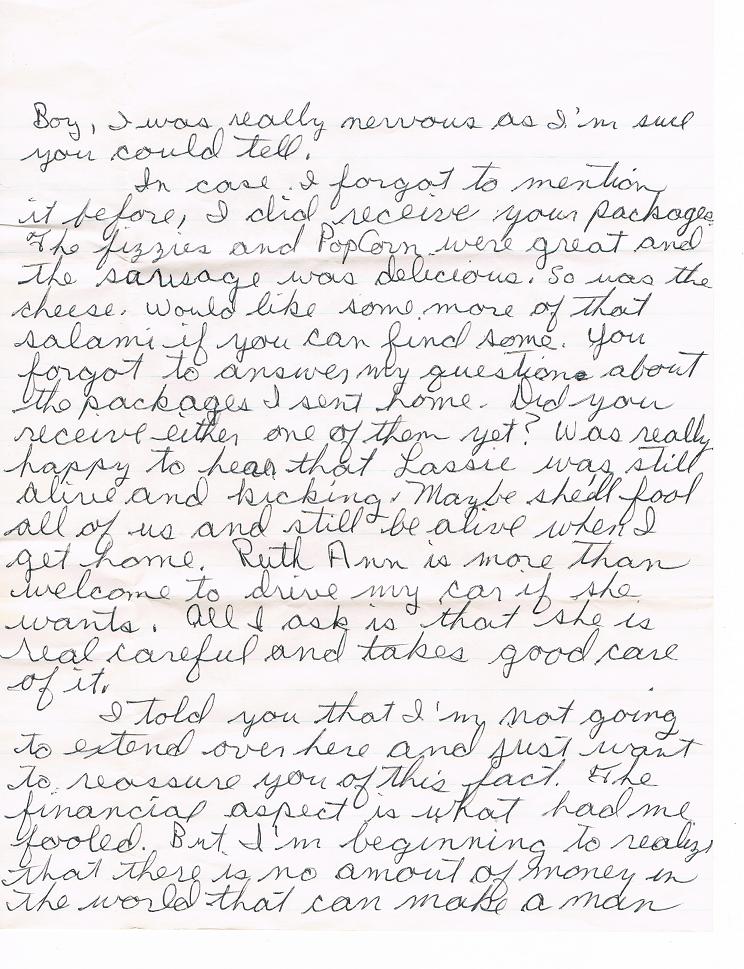 Boy, I was really nervous as I'm sure
you could tell.
In case I forgot to mention
it before, I did receive your packages.
The fizzies and PopCorn were great and
the sausage was delicious. So was the
cheese. Would like some more of that
salami if you can find some. You
forgot to answer my questions about
the packages I sent home. Did you
receive either one of them yet? Was really
happy to hear that Lassie was still
alive and kicking. Maybe she'll fool
all of us and still be alive when I
get home. Ruth Ann is more than
welcome to drive my car if she
wants. All I ask is that she is
real careful and takes good care
of it.
I told you that I'm not going
to extend over here and just want
to reassure you of this fact. The
financial aspect is what had me
fooled. But I'm beginning to realize
that there is no amout of money in
the world that can make a man